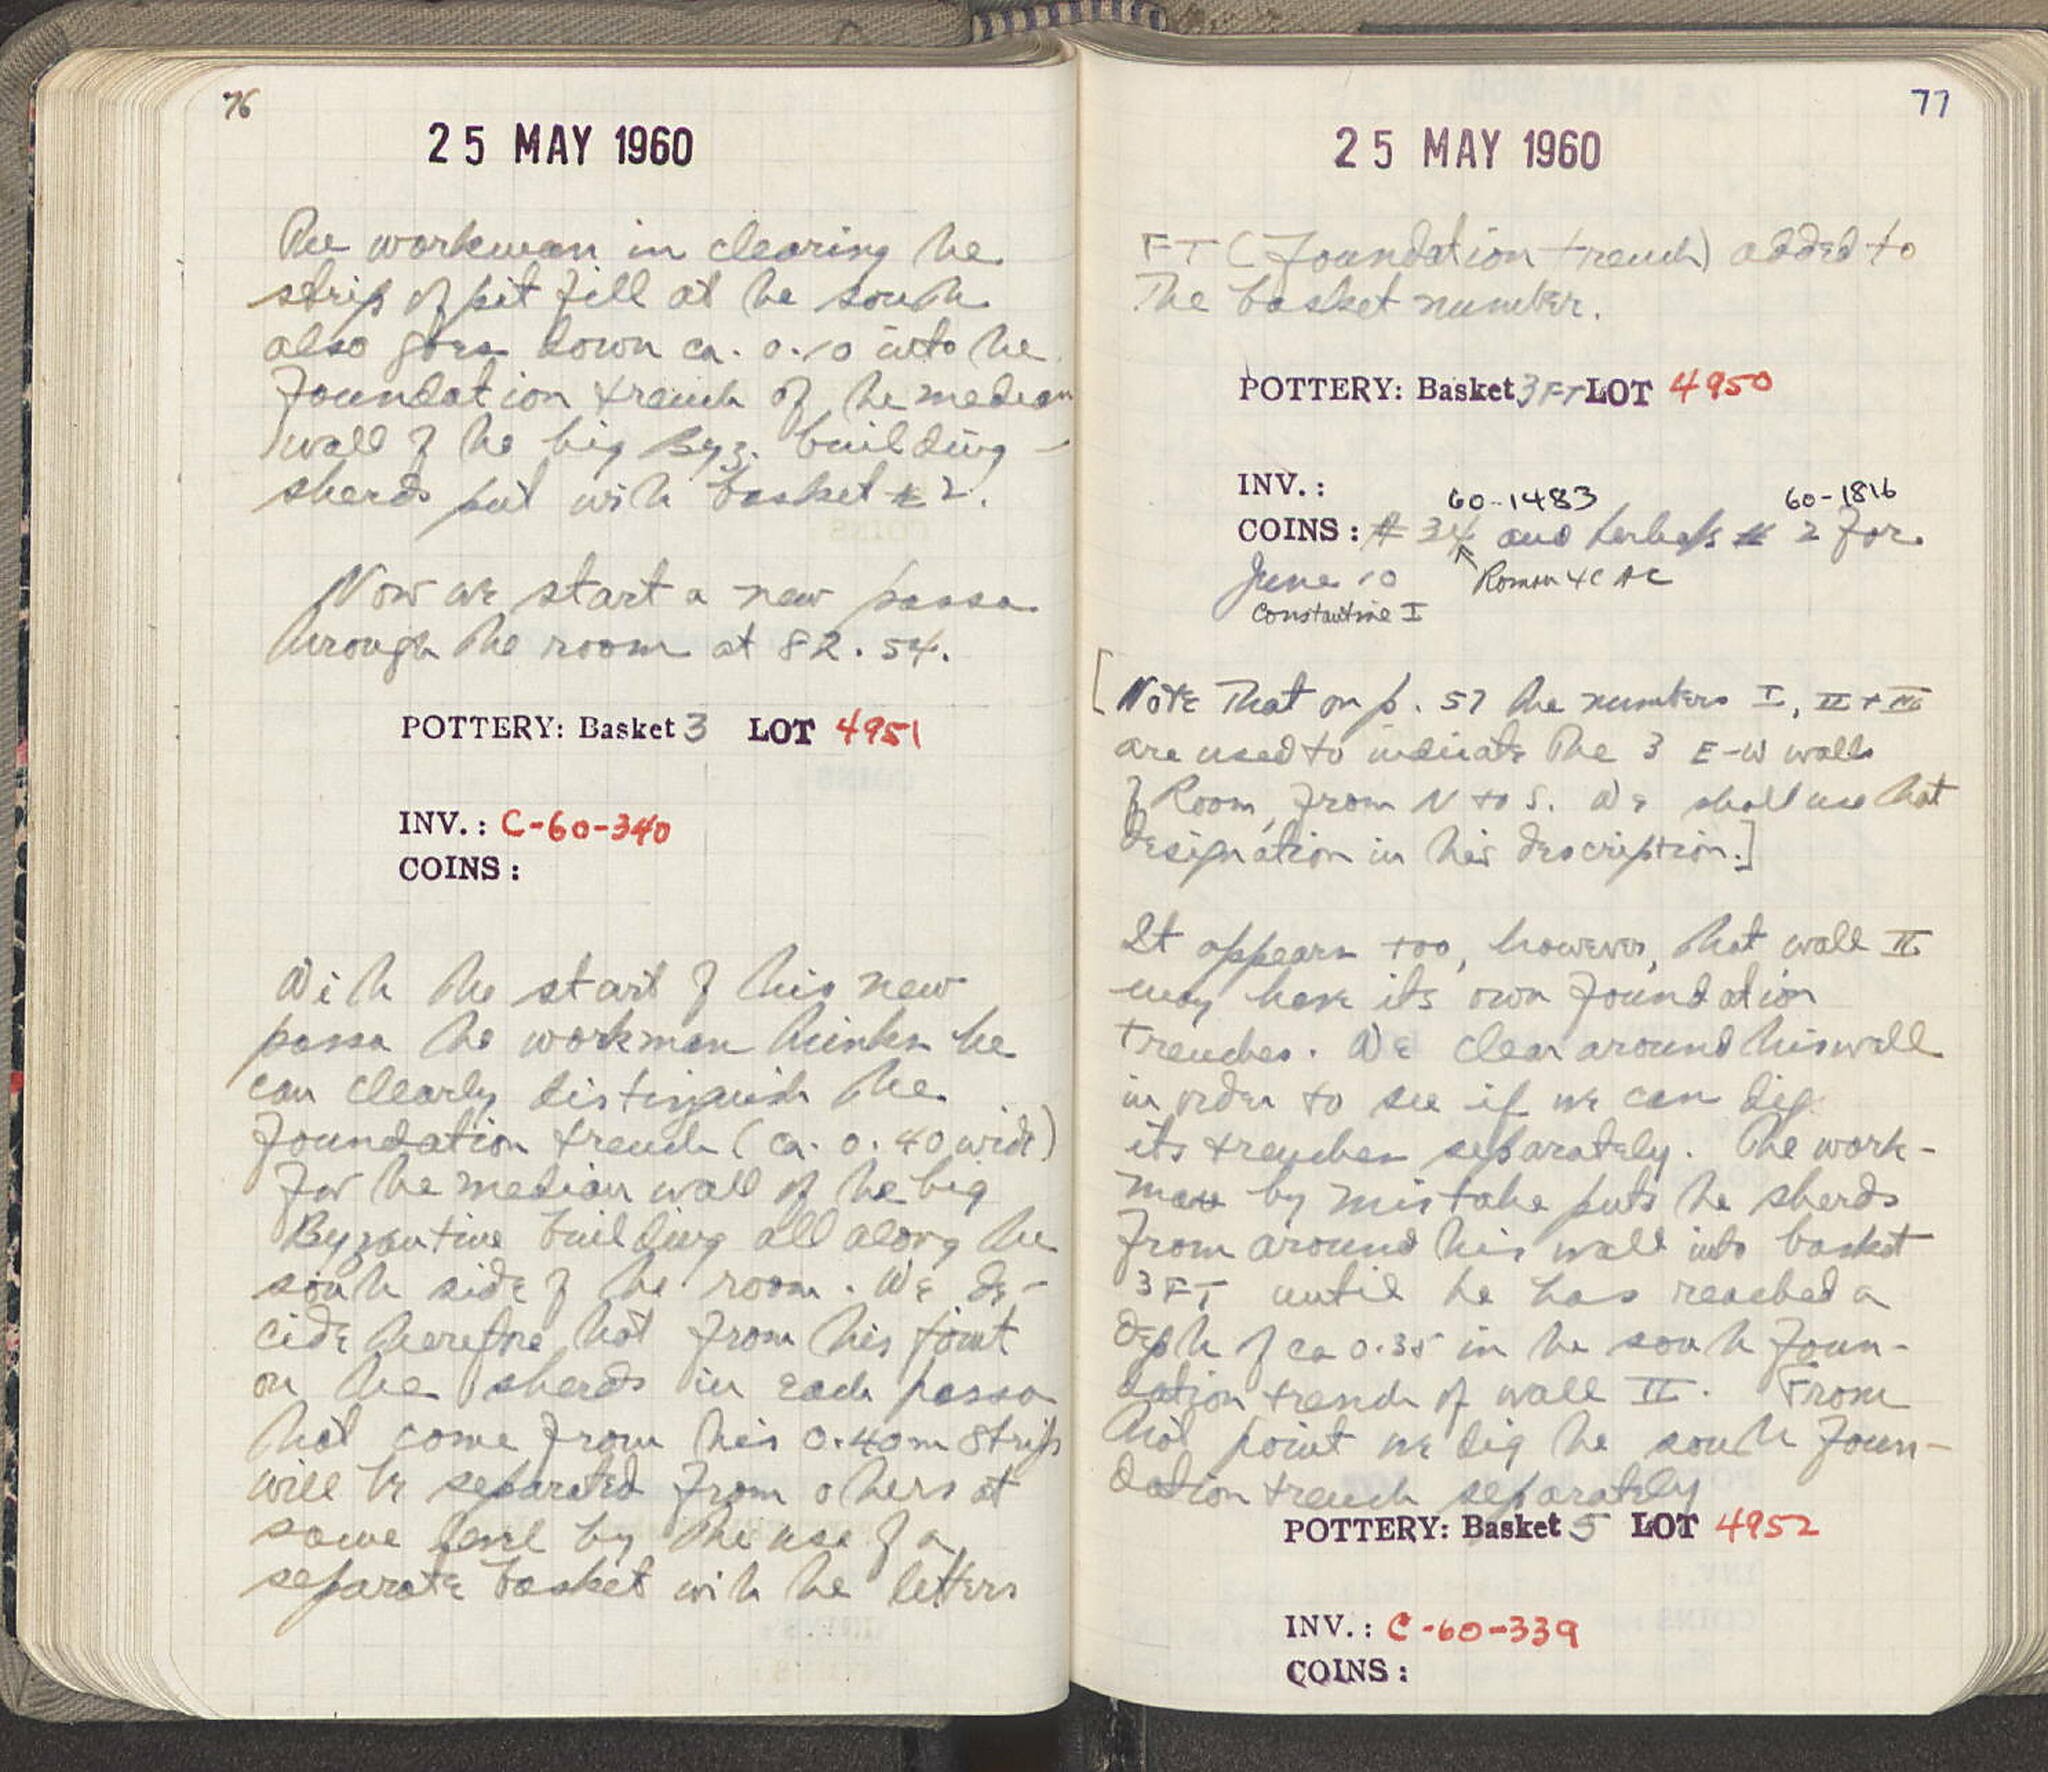 76
25 MAY 1960
The workman in clearing the
strip of pit fill at the south
also goes down ca. 0.10 into the
foundation trench of the median
wall of the big Byz. building –
sherds put with basket # 2.
Now we start a new passa
through the room at 82.54.
POTTERY: Basket 3 LOT 4951
INV.: C-60-340
COINS:
With the start of this new
passa the workman thinks he
can clearly distinguish the
foundation trench (ca. 0.40 wide)
for the median wall of the big
Byzantine building all along the
south side of the room. We de-
cide therefore that from this point
on the sherds in each passa
that come from this 0.40m strip
will be separated from others at
same level by the use of a
separate basket with the letters
77
25 MAY 1960
FT (Foundation trench) added to
the basket number.
POTTERY: Basket 3FT LOT 4950
INV.:
60-1483 60-1816
COINS: # 34 and perhaps # 2 for
June 10 Roman 4C AC
Constantine I
[Note that on p. 57 the numbers I, II + III
are used to indicate the 3 E-W walls
of Room, from N to S. We shall use that
designation in this description.]
It appears too, however, that wall II
may have its own foundation
trenches. We clear around this wall
in order to see if we can dig
its trenches separately. The work-
man by mistake puts the sherds
from around this wall into basket
3FT until he has reached a
depth of ca 0.35 in the south foun-
dation trench of wall II. From
that point we dig the south foun-
dation trench separately
POTTERY: Basket 5 LOT 4952
INV.: C-60-339
COINS: